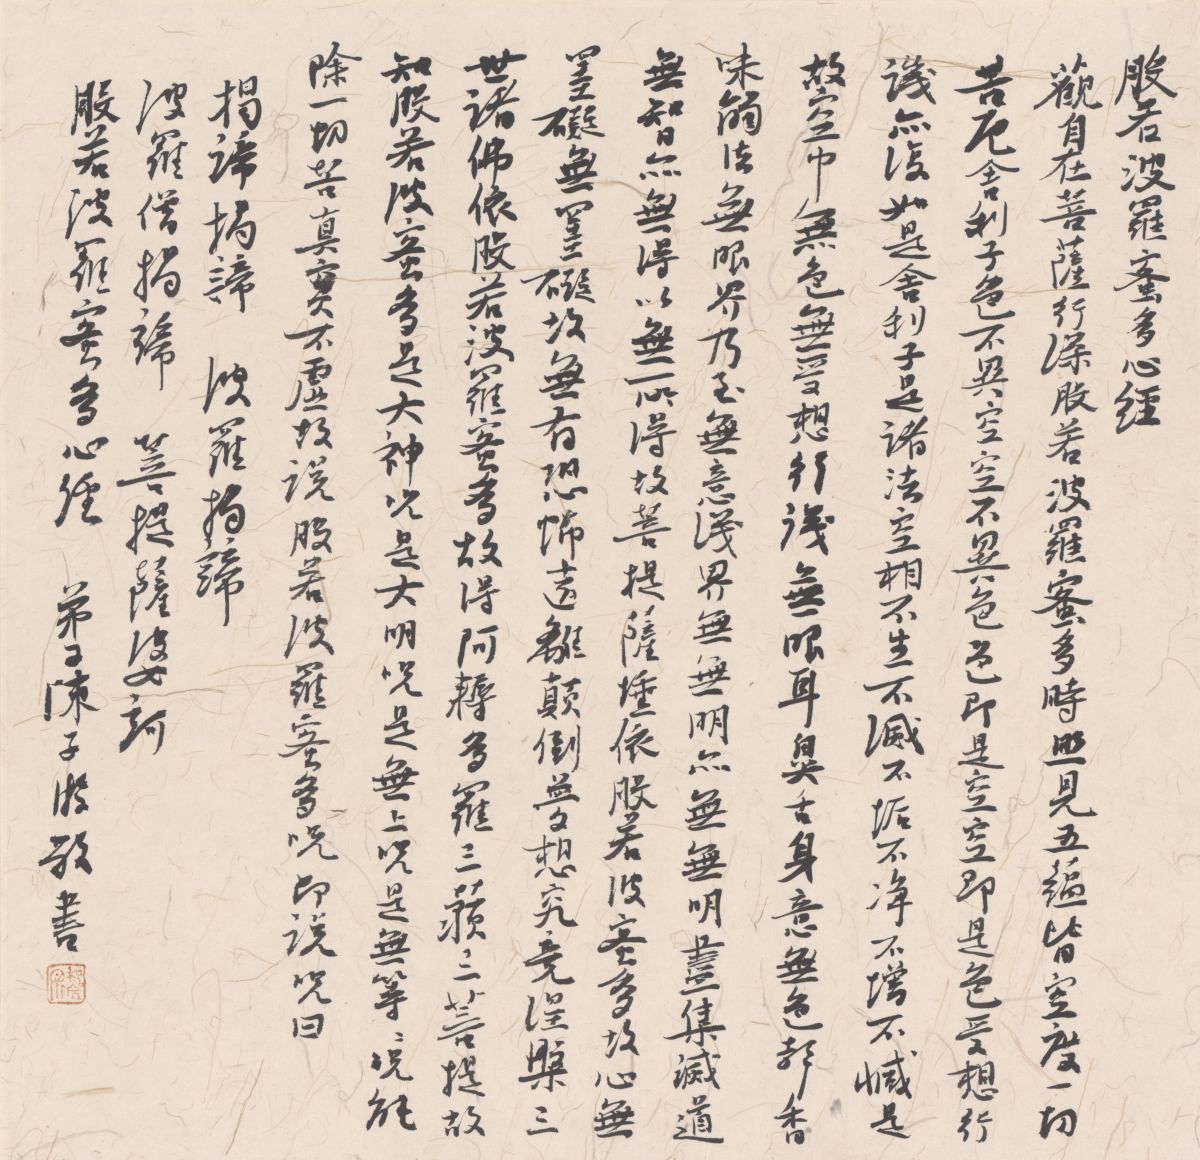 般若波羅蜜多心經
觀自在菩薩行深般若波羅蜜多時照見五蘊皆空度一切
苦厄舍利子色不異空空不異色色即是空空即是色受想行
識亦復如是舍利子是諸法空相不生不滅不垢不淨不增不減是
故空中無色無受想行識無眼耳鼻舌身意無色聲香
味觸法無眼界乃至無意識界無無明亦無無明盡集滅道
無智亦無得以無所得故菩提薩埵依般若波蜜多故心無
罣礙無罣礙故無有恐怖遠離顛倒夢想究竟涅槃三
世諸佛依般若波羅蜜多故得阿耨多羅三藐三菩提故
知般若波蜜多是大神咒是大明咒是無上咒是無等々咒能
除一切苦真實不虛故說般若波羅蜜多咒即說咒曰
揭諦揭諦 波羅揭諦
波羅僧揭諦 菩提薩婆訶
般若波羅蜜多心經 弟子陳子游敬書